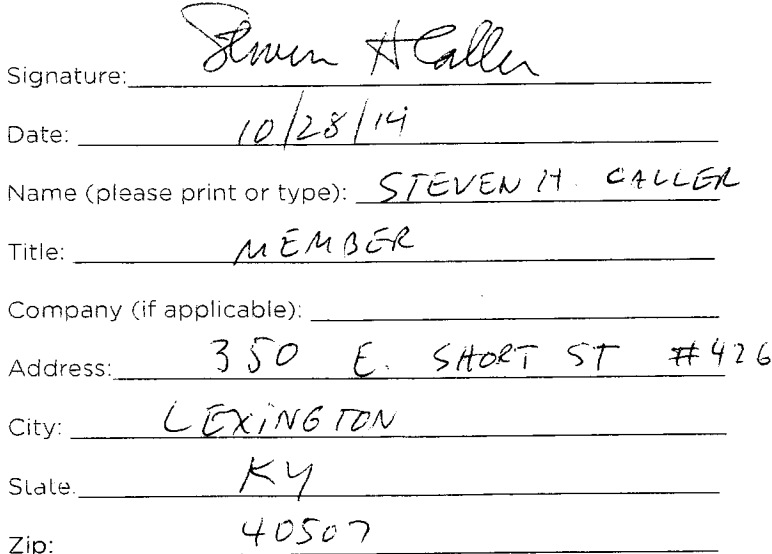 Signature: Steven H Caller
Date: 10/28/14
Name (please print or type): STEVEN H. CALLER
Title: MEMBER
Company (if applicable):
Address: 350 E. SHORT ST #426
City: LEXINGTON
State.
KY
Zip: 40507